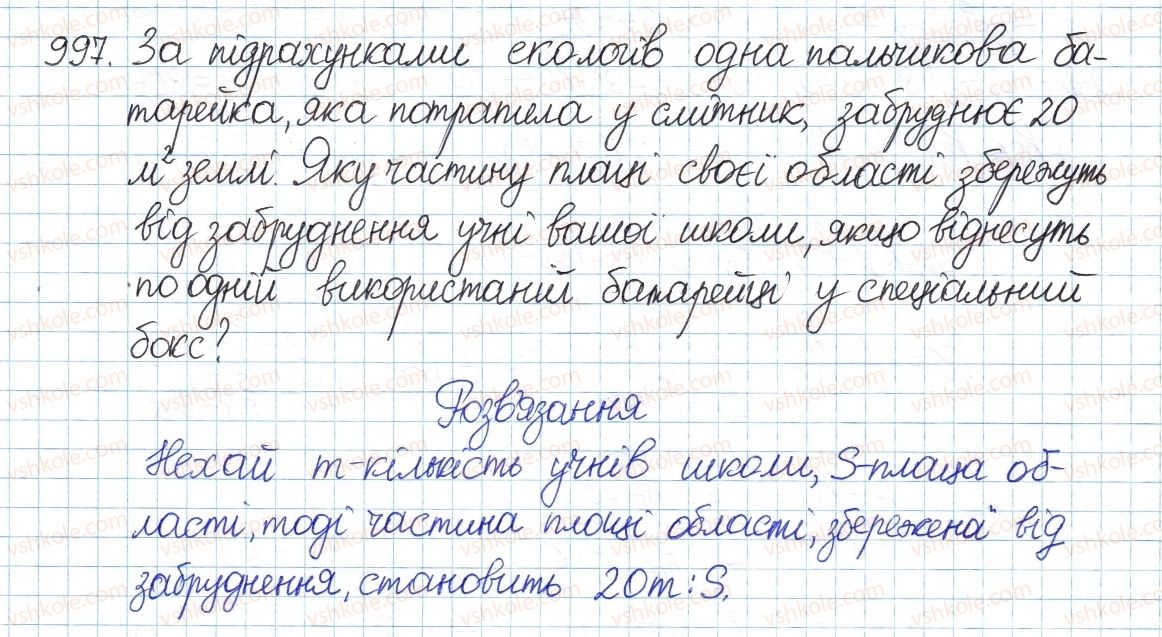 997. За підрахунками екологів одна пальчикова ба-
тарейка, яка потрапила у смітник, забруднює 20
м² землі. Яку частину площі своєї області збережуть
від забруднення учні вашої школи, якщо віднесуть
по одній використаній батарейці у спеціальний
бокс?
Розв'язання
Нехай m-кількість учнів школи, S-площа об-
ласті, тоді частина площі області, збережена від
забруднення, становить 20m:S.